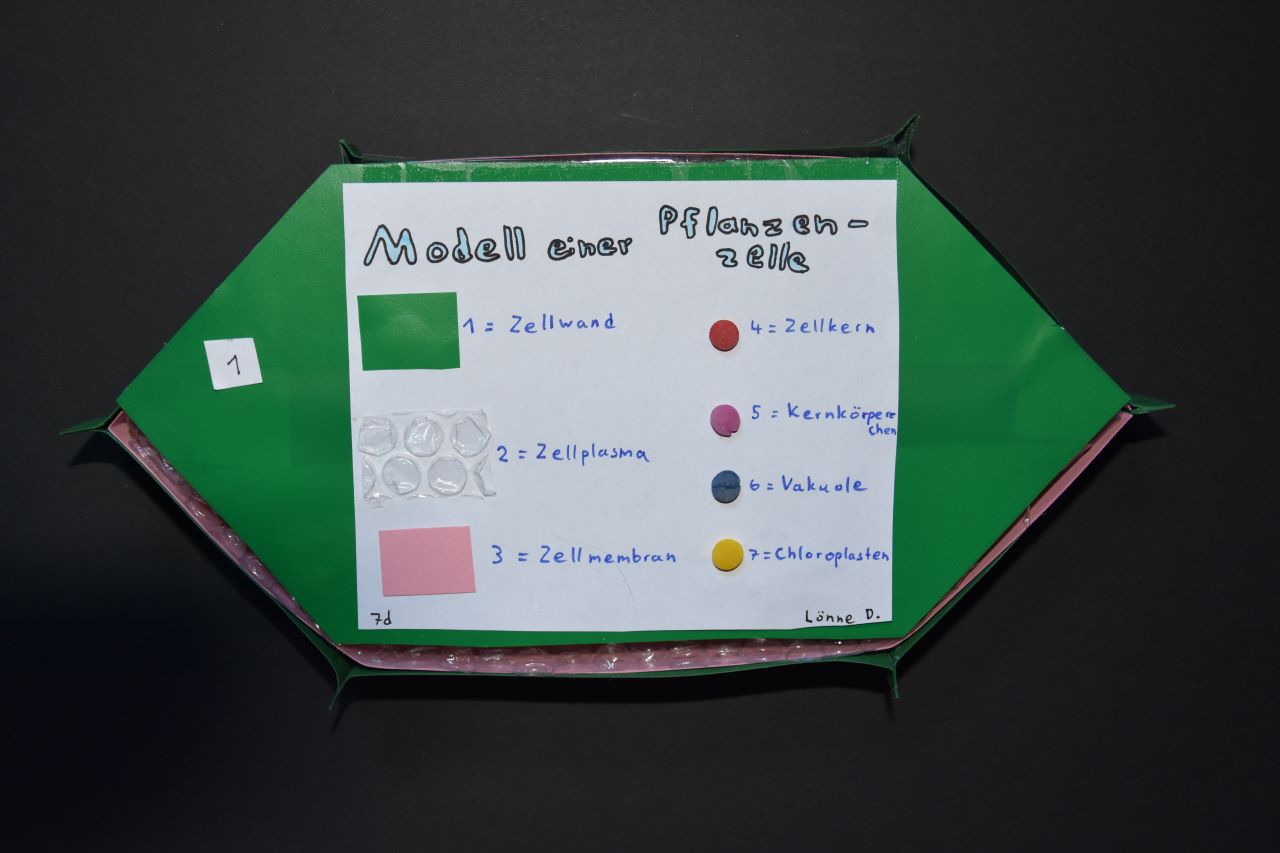 Modell einer Pflanzen-
zelle
1
1 = Zellwand
2 = Zellplasma
3 = Zellmembran
4 = Zellkern
5 = Kernkörpere
chen
6 = Vakuole
7 = Chloroplasten
7d
Lönne D.